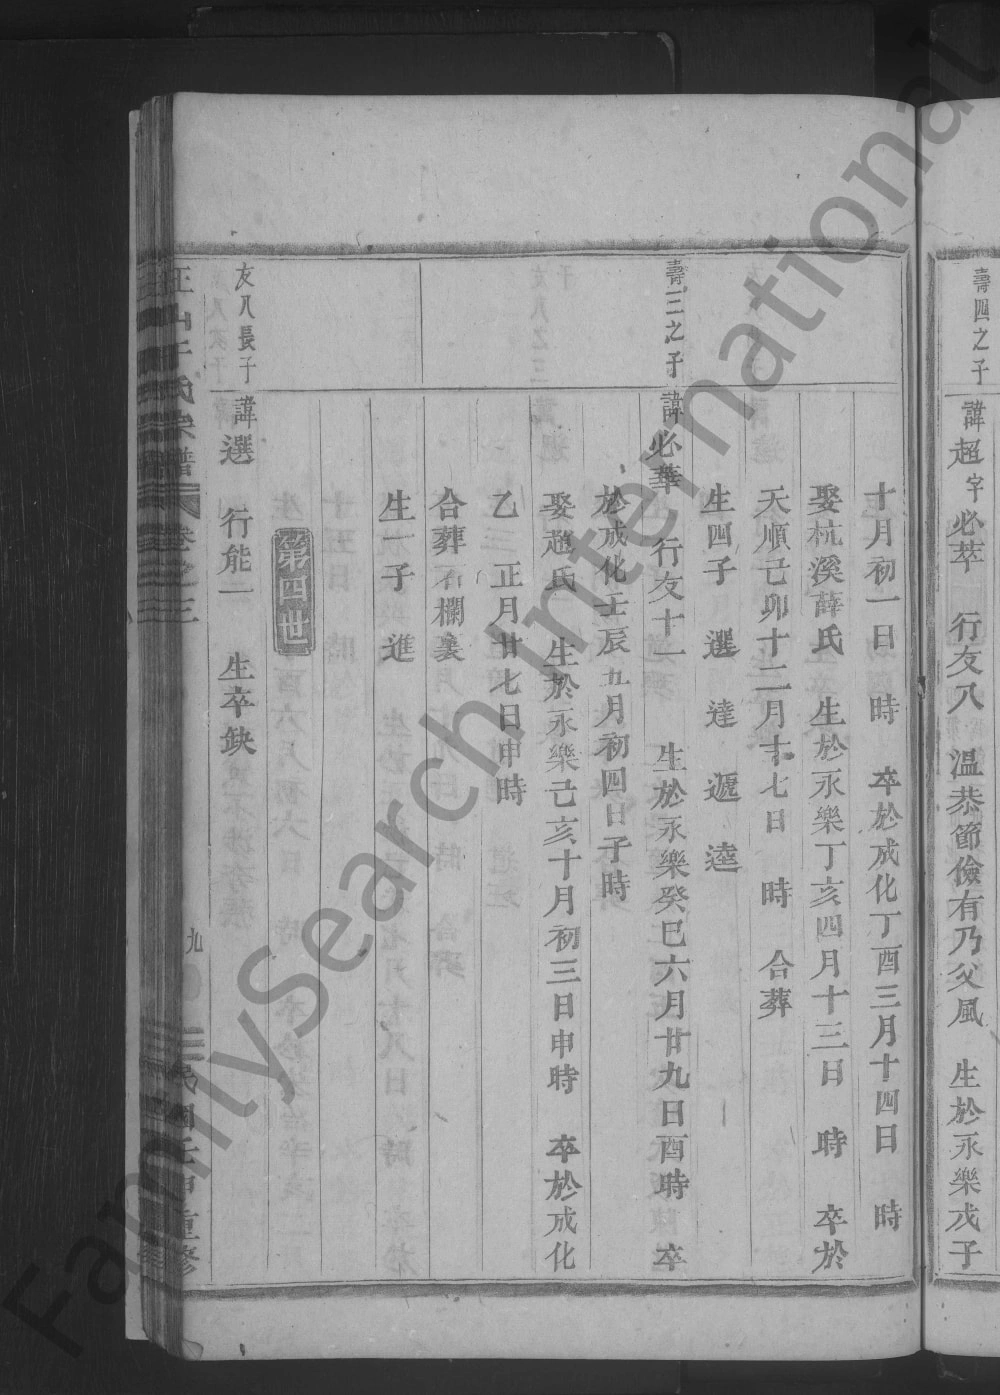 壽四之子
諱超字必萃 行友八 溫恭節儉有乃父風 生於永樂戊子
十月初一日 時 卒於成化丁酉三月十四日 時
娶杭溪薛氏 生於永樂丁亥四月十三日 時 卒於
天順己卯十二月十七日 時 合葬
生四子 選 達 遞 逵
壽三之子
諱必華 行友十一 生於永樂癸巳六月廿九日酉時 卒
於成化壬辰五月初四日子時
娶趙氏 生於永樂己亥十月初三日申時 卒於成化
乙 正月廿七日申時
合葬石欄裏
生一子 進
第四世
友八長子
諱選 行能一 生卒缺
王氏宗譜 卷之三 九 民國壬申重修
FamilySearch International